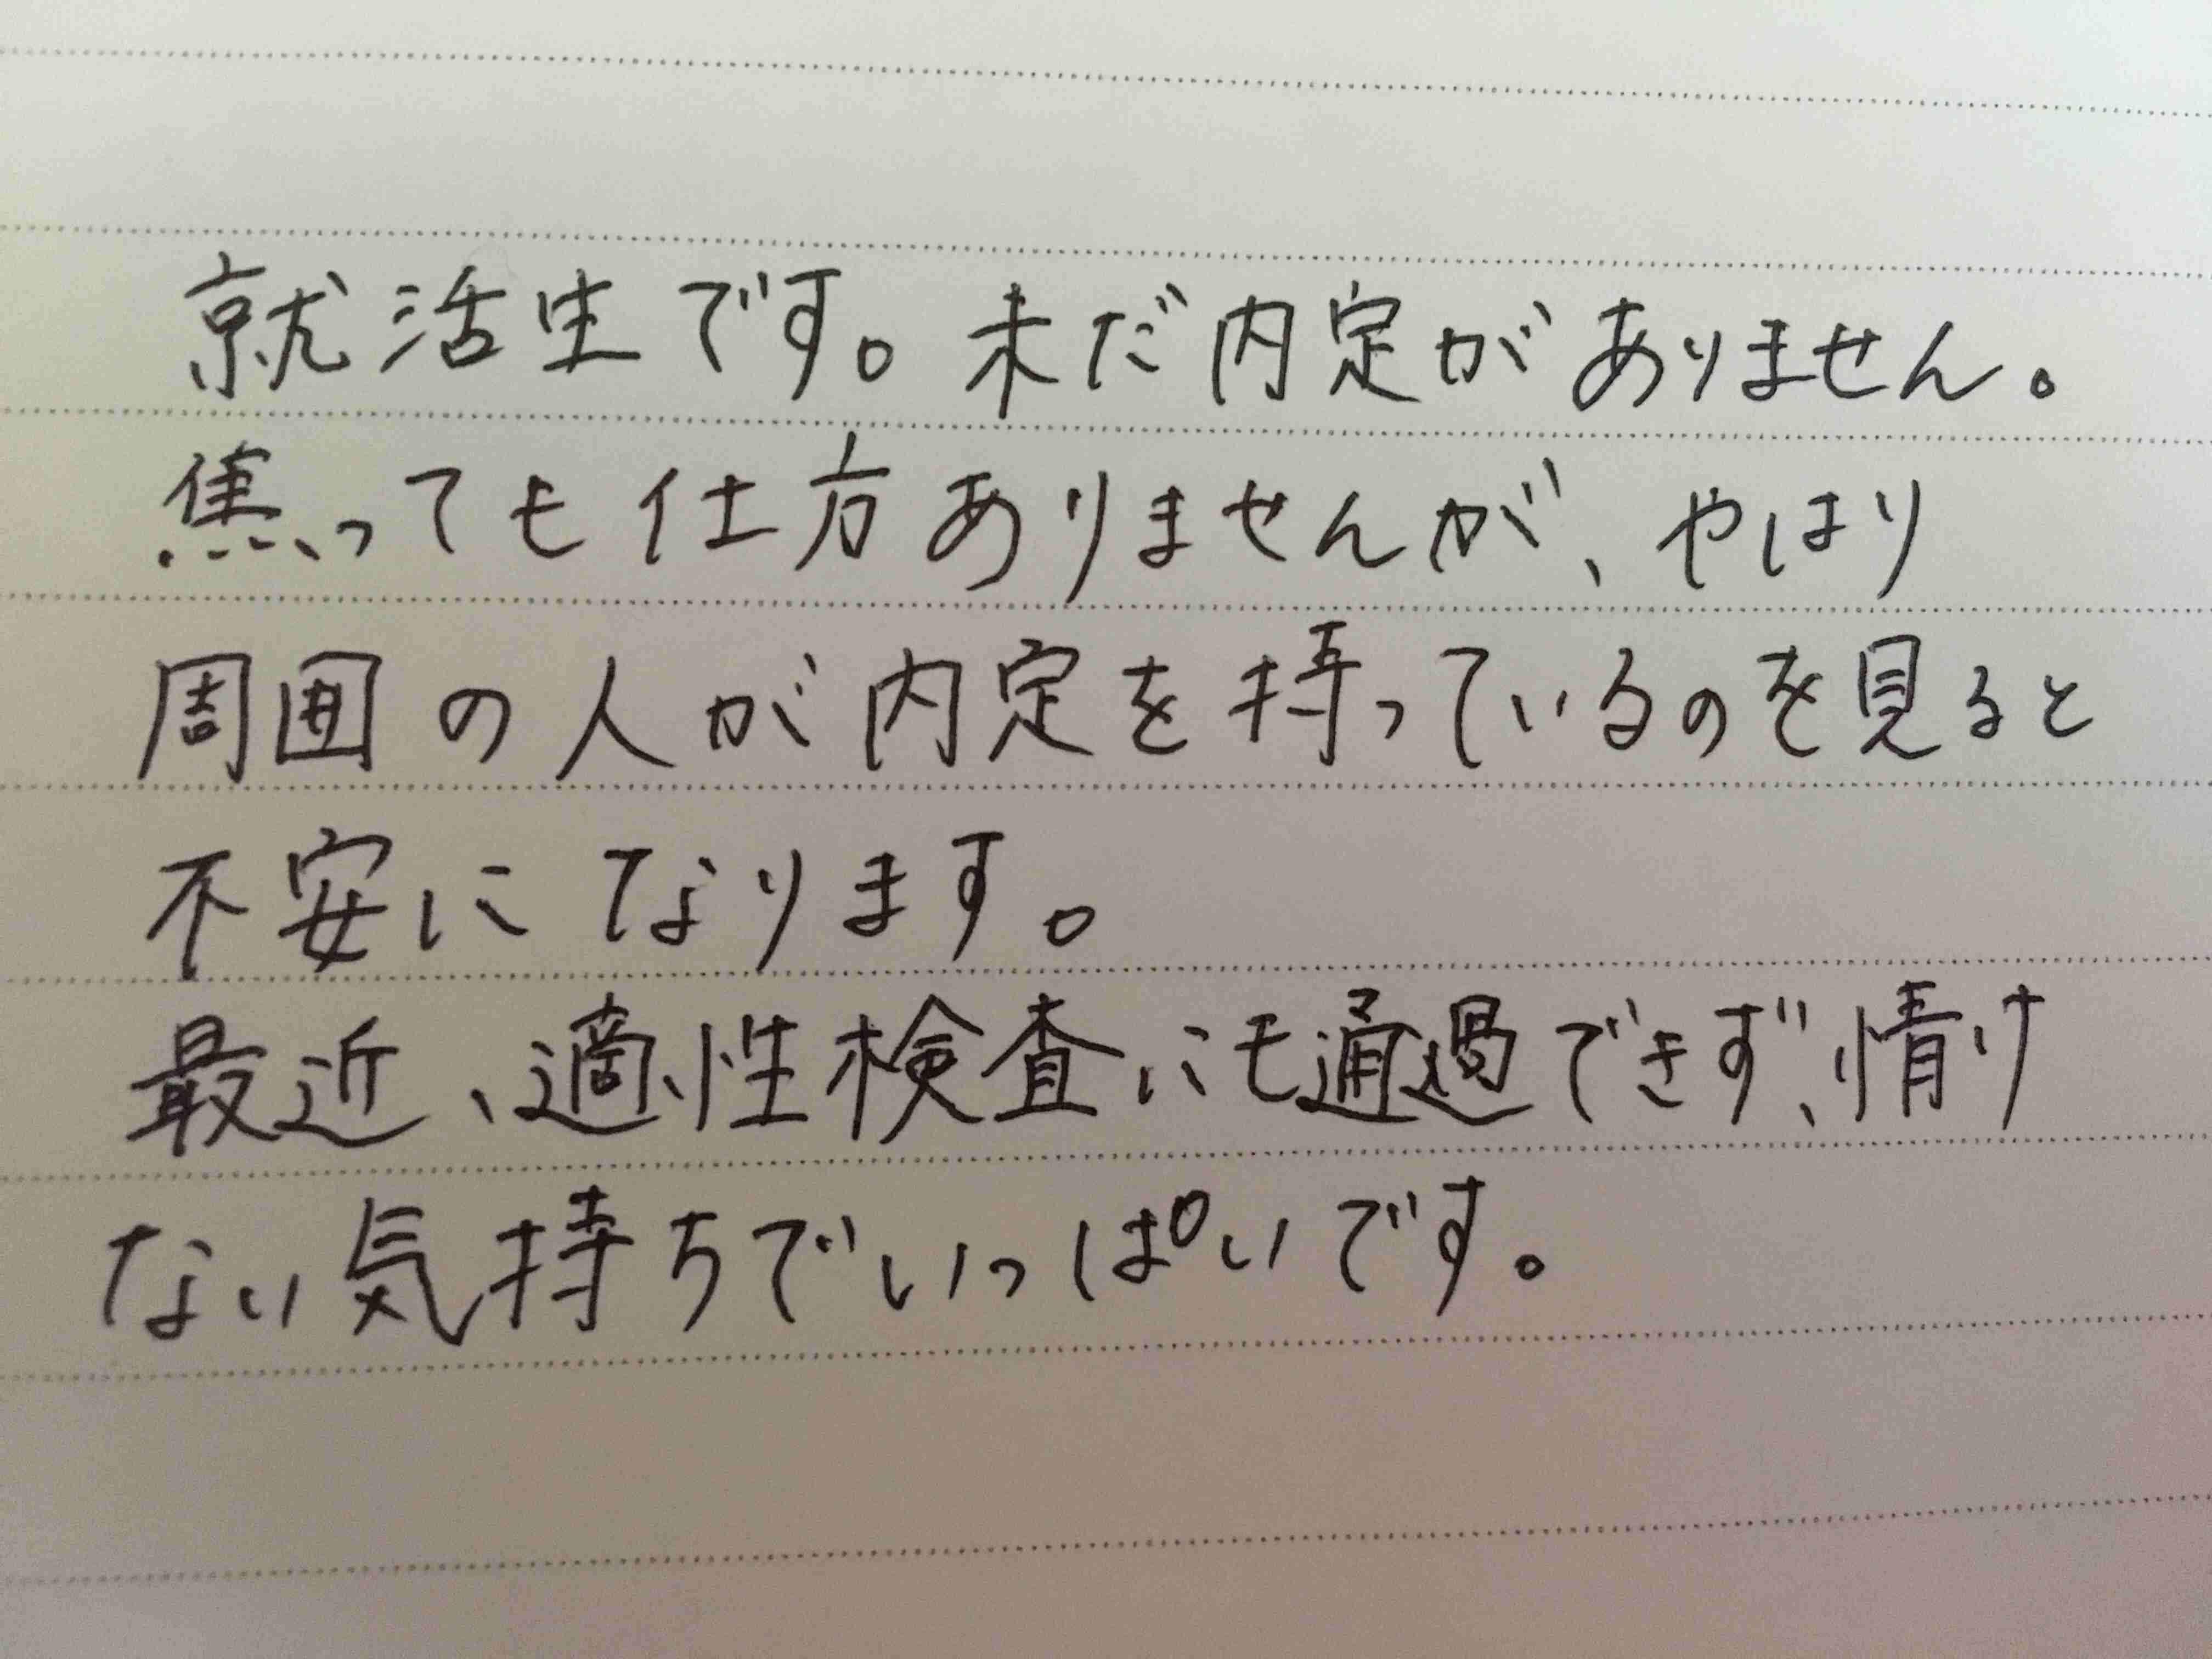 就活生です。未だ内定がありません。
焦っても仕方ありませんが、やはり
周囲の人が内定を持っているのを見ると
不安になります。
最近、適性検査にも通過できず、情け
ない気持ちでいっぱいです。